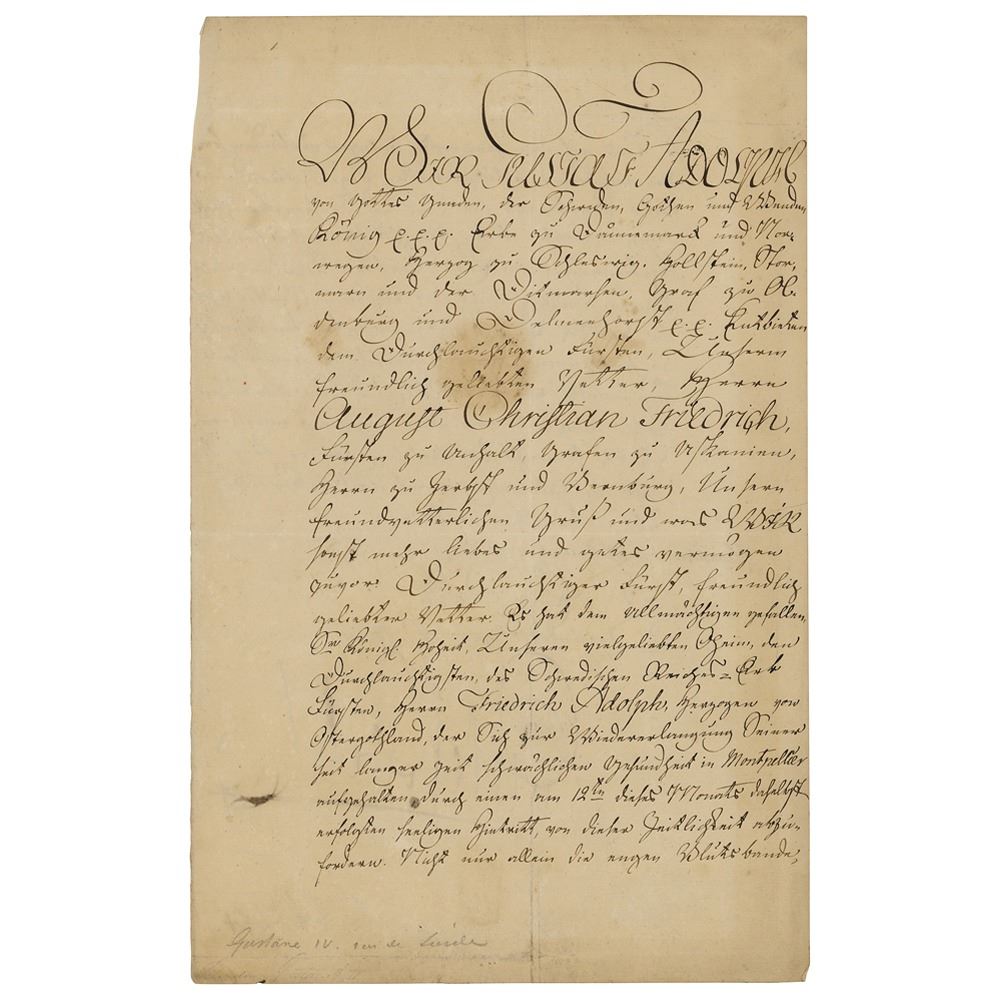 WIR GUSTAF ADOLPH
von Gottes Gnaden, der Schweden, Gothen und Wenden
König p. p. p. Erbe zu Dännemarck und Nor-
wegen, Herzog zu Schleswig, Hollstein, Stor-
marn und der Ditmarsen, Graf zu Ol-
denburg und Delmenhorst p. p. Entbieten
dem Durchlauchtigen Fürsten, Unserm
freundlich geliebten Vetter, Herrn
August Christian Friedrich,
Fürsten zu Anhalt, Grafen zu Askanien,
Herrn zu Zerbst und Bernburg, Unsern
freundvetterlichen Gruß und was WIR
sonst mehr liebes und gutes vermögen
zuvor. Durchlauchtiger Fürst, freundlich
geliebter Vetter. Es hat dem Allmächtigen gefallen,
Sr Königl. Hoheit, Unseren vielgeliebten Oheim, den
Durchlauchtigsten, des Schwedischen Reiches-Erb
Fürsten, Herrn Friedrich Adolph, Herzogen von
Ostergothland, der Sich zur Wiedererlangung Seiner
seit langer Zeit schwächlichen Gesundheit in Montpellier
aufgehalten, durch einen am 12ten dieses Monats daselbst
erfolgten seeligen Hintritt, von dieser Zeitlichkeit abzu-
fordern. Nicht nur allein die engen Blutsbande,
Gustave IV. roi de Suède